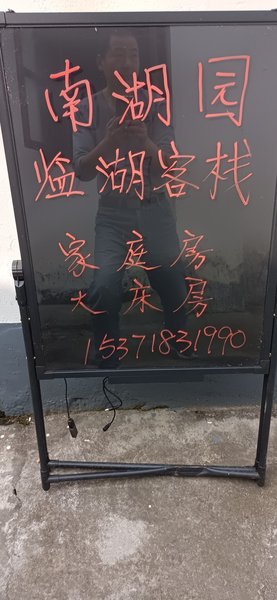 南湖园
临湖客栈
家庭房
大床房
15371831990